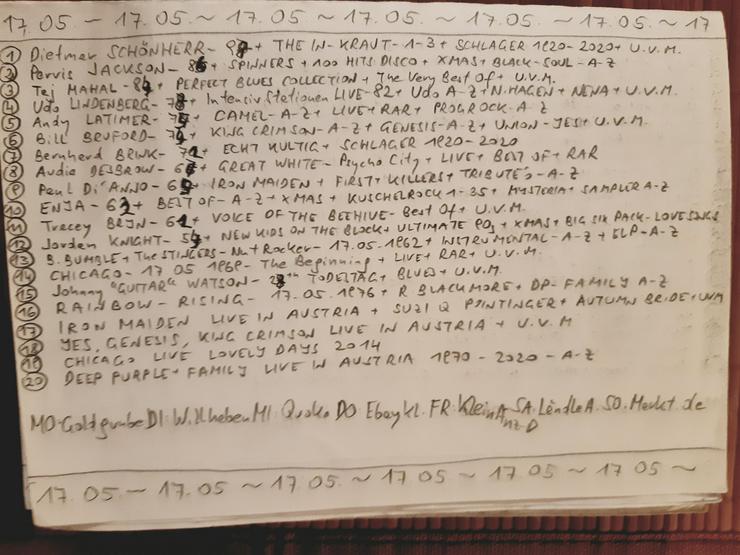 17.05. ~ 17.05. ~ 17.05. ~ 17.05. ~ 17.05. ~ 17.05. ~ 17
① Dietmar SCHÖNHERR - + THE IN-KRAUT-1-3 + SCHLAGER 1920-2020 + U.V.M.
② Pervis JACKSON - + SPINNERS + 100 HITS DISCO + XMAS + BLACK-SOUL-A-Z
③ Taj MAHAL - + PERFECT BLUES COLLECTION + The Very Best Of + U.V.M.
④ Udo LINDENBERG - + Intensivstationen LIVE-82 + Udo A-Z + N.HAGEN + NENA + U.V.M.
⑤ Andy LATIMER - + CAMEL-A-Z + LIVE + RAR + PROGROCK-A-Z
⑥ Bill BRUFORD - + KING CRIMSON-A-Z + GENESIS-A-Z + UNION-YES + U.V.M.
⑦ Bernhard BRINK - + ECHT KULTIG + SCHLAGER 1920-2020
⑧ Audie DESBROW - + GREAT WHITE - Psycho City + LIVE + BEST OF + RAR
⑨ Paul Di'ANNO - + IRON MAIDEN + FIRST + KILLERS + TRIBUTE'S - A-Z
⑩ ENJA - + BEST OF - A-Z + XMAS + KUSCHELROCK 1-35 + MYSTERIA + SAMPLER A-Z
⑪ Tracey BRYN - + VOICE OF THE BEEHIVE - Best Of + U.V.M.
⑫ Jordan KNIGHT - + NEW KIDS ON THE BLOCK + ULTIMATE 90s + XMAS + BIG SIX PACK - LOVESONGS
⑬ B. BUMBLE + The STINGERS - Nut Rocker - 17.05.1962 + INSTRUMENTAL-A-Z + ELP-A-Z
⑭ CHICAGO - 17 05 1969 - The Beginning + LIVE + RAR + U.V.M.
⑮ Johnny "GUITAR" WATSON - TODESTAG + BLUES + U.V.M.
⑯ RAINBOW - RISING - 17.05.1976 + R BLACKMORE + DP-FAMILY A-Z
⑰ IRON MAIDEN LIVE IN AUSTRIA + SUZI Q + AUTUMN BRIDE + UVM
⑱ YES, GENESIS, KING CRIMSON LIVE IN AUSTRIA + U.V.M
⑲ CHICAGO LIVE LOVELY DAYS 2014
⑳ DEEP PURPLE + FAMILY LIVE IN AUSTRIA 1970-2020-A-Z
MO: Goldgrube DI: Willhaben MI: Quoka DO Ebaykl. FR: KleinAnz D SA: LändleA. SO: Markt.de
17.05 ~ 17.05 ~ 17.05 ~ 17.05 ~ 17.05 ~ 17.05 ~